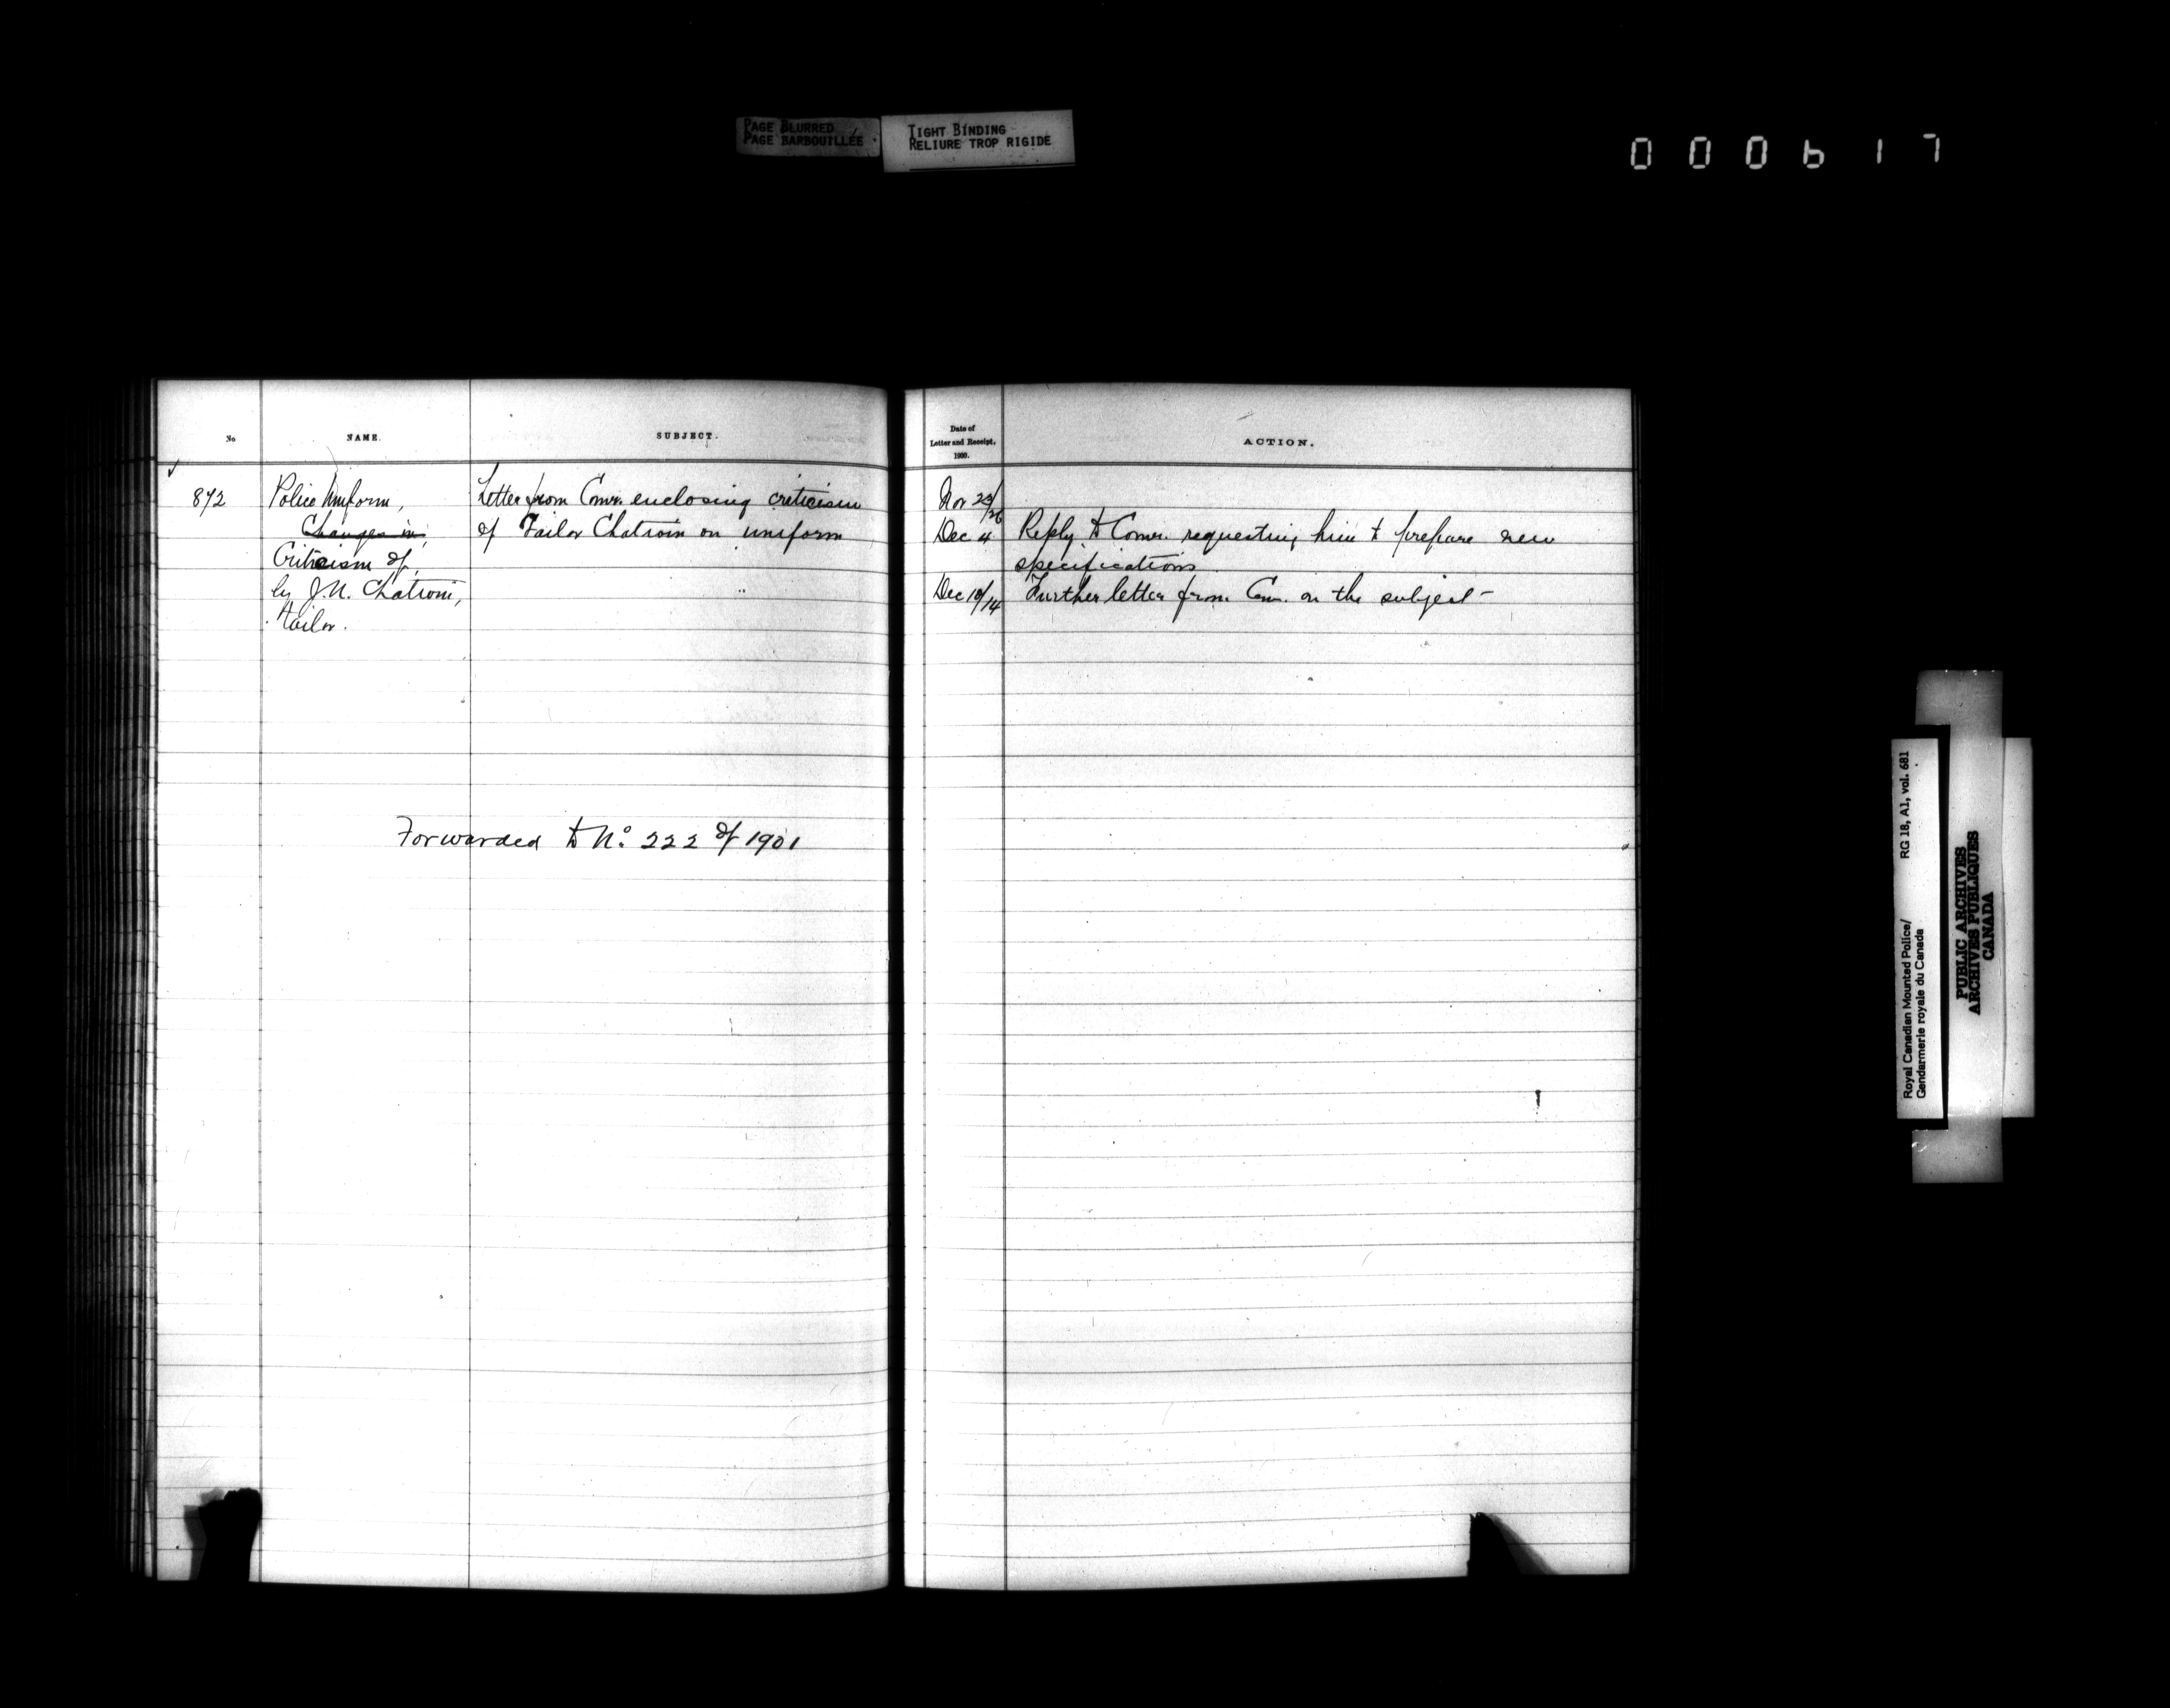 PAGE BLURRED
PAGE BARBOUILLÉE
TIGHT BINDING
RELIURE TROP RIGIDE
000617
No
NAME.
SUBJECT.
Date of
Letter and Receipt,
1900.
ACTION.
872
Police Uniform,
Changes in,
Criticism of,
by J.N. Chatroin,
tailor.
Letter from Comr. enclosing criticism
of Tailor Chatroin on uniform
Forwarded to No. 222 of 1901
Nov 23/26
Dec 4 Reply to Comr. requesting him to prepare new
specifications
Dec 10/14 Further letter from Com. on the subject -
Royal Canadian Mounted Police/ RG 18, A1, vol. 681
Gendarmerie royale du Canada
PUBLIC ARCHIVES
ARCHIVES PUBLIQUES
CANADA